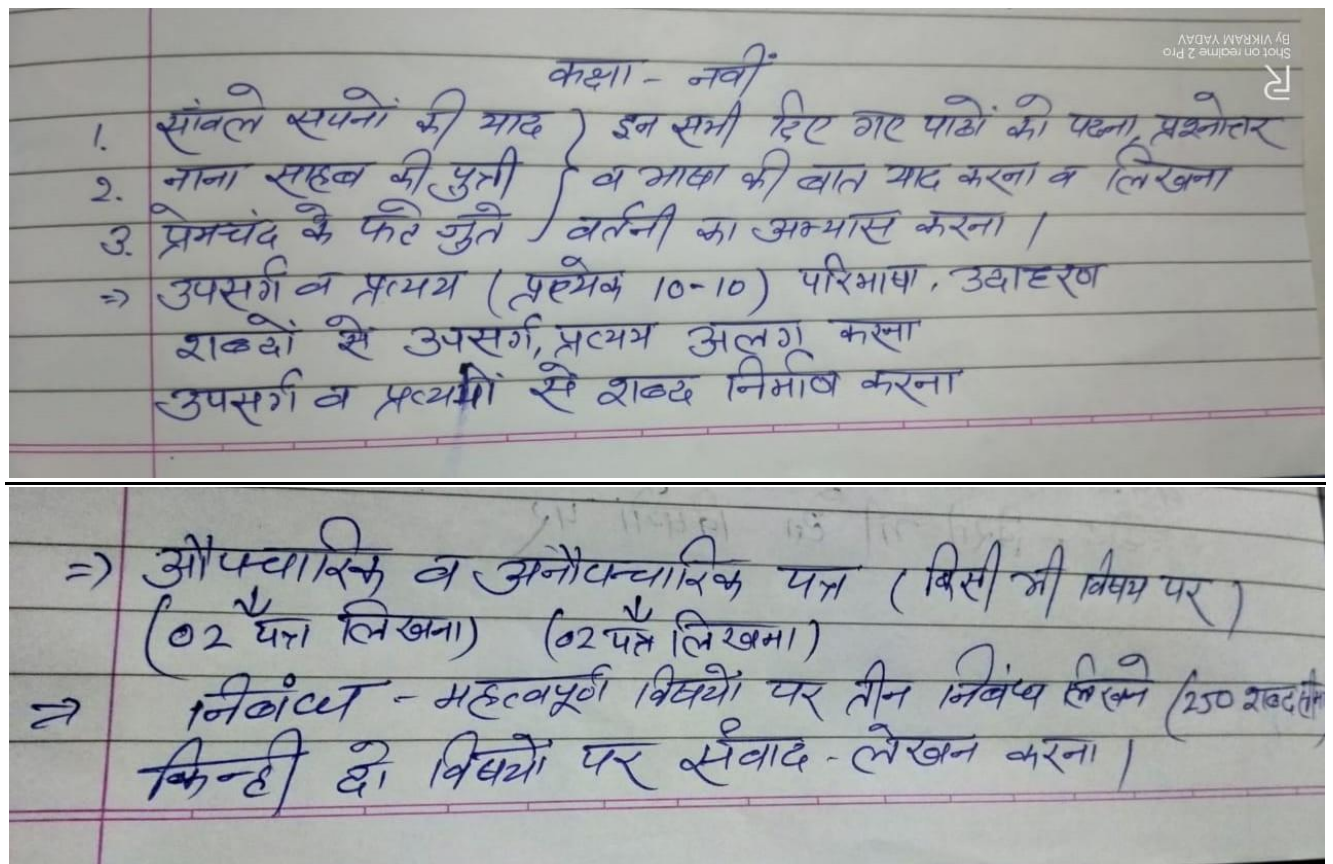 Shot on realme 2 Pro
By VIKRAM YADAV
कक्षा - नवीं
1. साँवले सपनों की याद } इन सभी दिए गए पाठों को पढना, प्रश्नोत्तर
2. नाना साहब की पुत्री } व भाषा की बात याद करना व लिखना
3. प्रेमचंद के फटे जुते } वर्तनी का अभ्यास करना ।
=> उपसर्ग व प्रत्यय (प्रत्येक 10-10) परिभाषा, उदाहरण
शब्दों से उपसर्ग, प्रत्यय अलग करना
उपसर्ग व प्रत्ययों से शब्द निर्माण करना
=> औपचारिक व अनौपचारिक पत्र (किसी भी विषय पर)
(02 पत्र लिखना) (02 पत्र लिखना)
=> निबंध - महत्वपूर्ण विषयों पर तीन निबंध लिखने (250 शब्द
किन्ही दो विषयों पर संवाद - लेखन करना ।